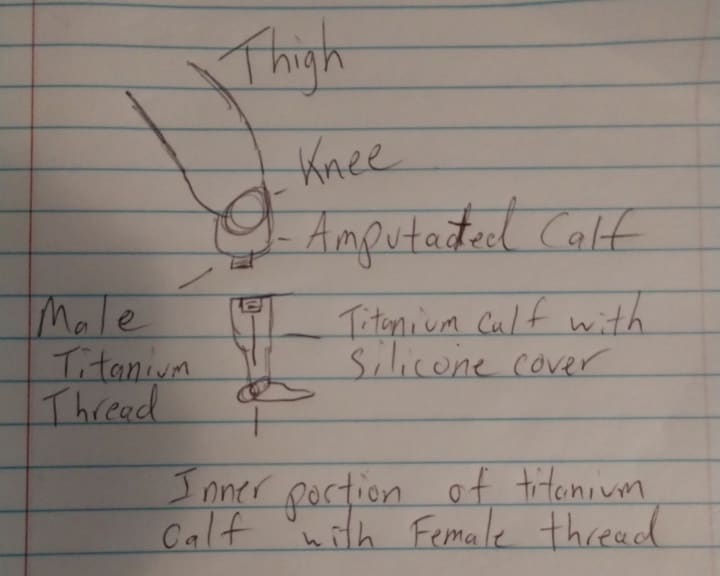 Thigh
Knee
Amputated Calf
Male
Titanium
Thread
Titanium Calf with
Silicone cover
Inner portion of titanium
Calf with Female thread